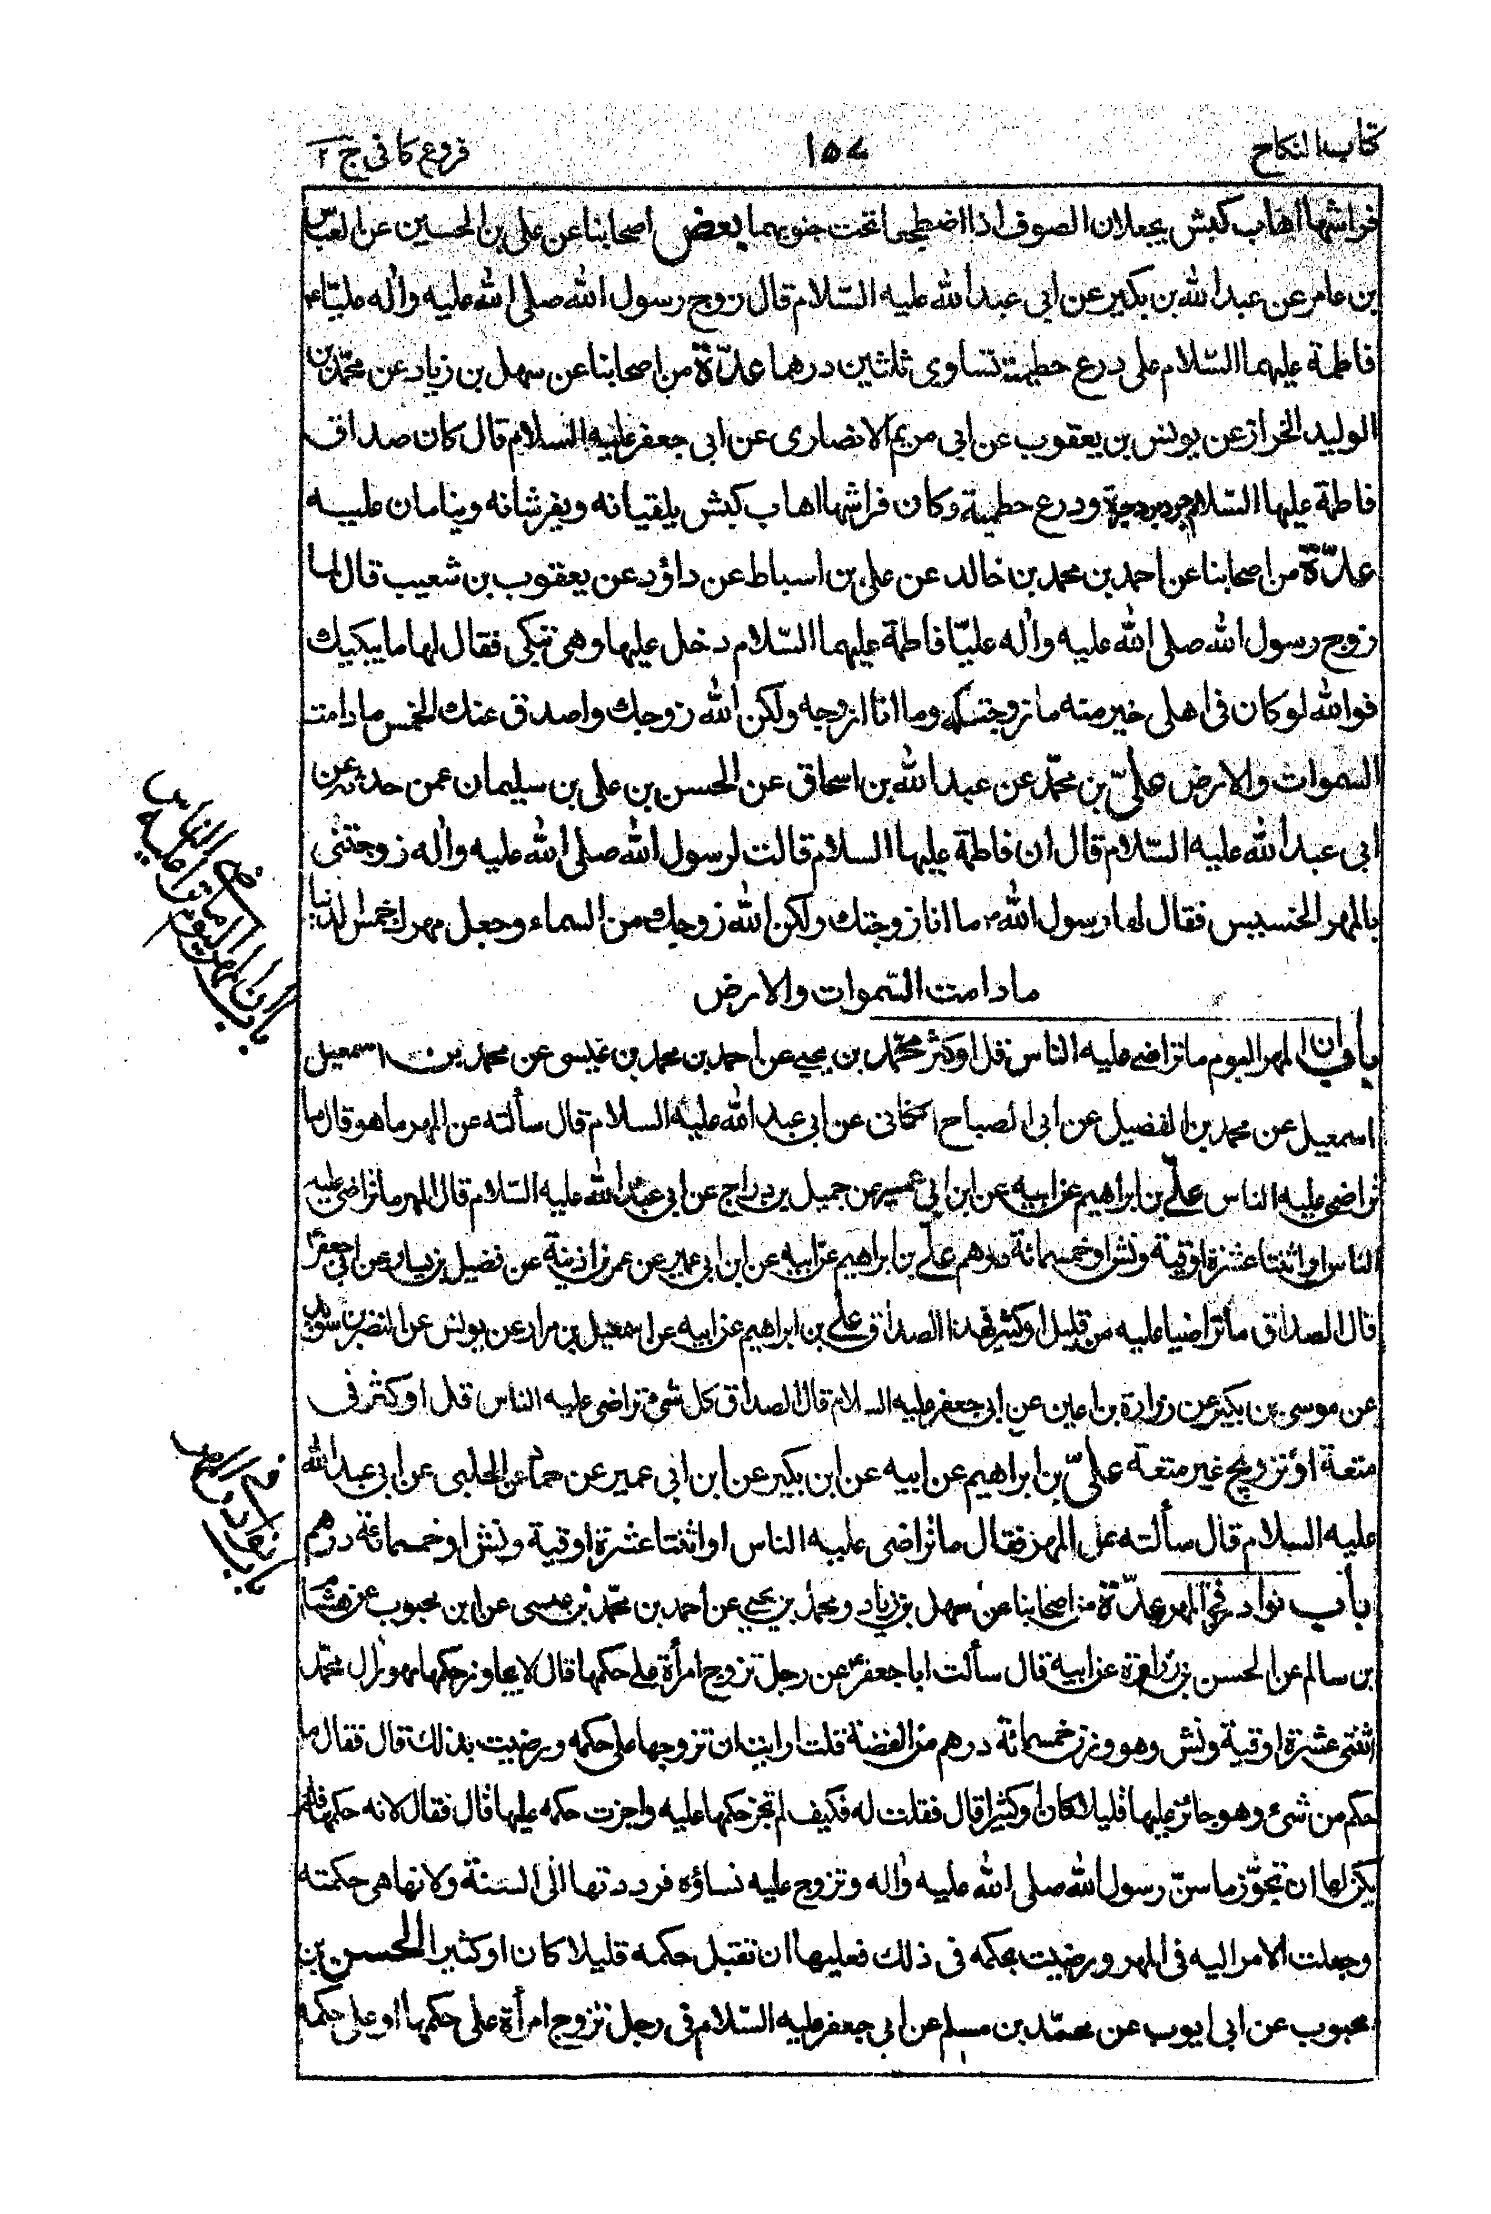 كتاب النكاح
١٥٧
فروع كافى ج ٢
فراشها اهاب كبش يجعلان الصوف اذا اضطجعا تحت جنوبهما بعض اصحابنا عن على بن الحسين عن العباس
بن عامر عن عبد الله بن بكير عن ابى عبد الله عليه السّلام قال زوج رسول الله صلى الله عليه واله عليّا ع
فاطمة عليهما السّلام على درع حطمية تساوى ثلثين درهما عدّة من اصحابنا عن سهل بن زياد عن محمّد بن
الوليد الخراز عن يونس بن يعقوب عن ابى مريم الانصارى عن ابى جعفر عليه السلام قال كان صداق
فاطمة عليها السّلام جرد برد حبرة ودرع حطمية وكان فراشها اهاب كبش يلقيانه ويفرشانه وينامان عليه
عدّة من اصحابنا عن احمد بن محمد بن خالد عن على بن اسباط عن داؤد عن يعقوب بن شعيب قال لما
زوج رسول الله صلى الله عليه واله عليّا فاطمة عليهما السّلام دخل عليها وهى تبكى فقال لها ما يبكيك
فوالله لو كان فى اهلى خير منه ما زوجتكه وما انا ازوجه ولكن الله زوجك واصدق عنك الخمس ما دامت
السموات والارض علىّ بن محمّد عن عبد الله بن اسحاق عن الحسن بن على بن سليمان عمن حدثه عن
ابى عبد الله عليه السّلام قال ان فاطمة عليها السلام قالت لرسول الله صلى الله عليه واله زوجتنى
بالمهر الخسيس فقال لها رسول الله ص ما انا زوجتك ولكن الله زوجك من السماء وجعل مهرك خمس الدنيا
ما دامت السّموات والارض
باب ان المهر اليوم ما تراضى عليه الناس قل او كثر محمّد بن يحيى عن احمد بن محمد بن عيسى عن محمد بن اسمعيل
اسمعيل عن محمد بن الفضيل عن ابى الصباح الكنانى عن ابى عبد الله عليه السلام قال سألته عن المهر ما هو قال ما
تراضى عليه الناس علىّ بن ابراهيم عن ابيه عن ابن ابى عمير عن جميل بن دراج عن ابى عبد الله عليه السّلام قال المهر ما تراضى عليه
الناس او اثنتا عشرة اوقية ونش او خمسمائة درهم علىّ بن ابراهيم عن ابيه عن ابن ابى عمير عن عمر بن اذينة عن فضيل بن يسار عن ابى جعفر ع
قال الصداق ما تراضيا عليه من قليل او كثير فهذا الصداق علىّ بن ابراهيم عن ابيه عن اسمعيل بن مرار عن يونس عن النضر بن سويد
عن موسى بن بكير عن زرارة بن اعين عن ابى جعفر عليه السلام قال الصداق كل شئ تراضى عليه الناس قل او كثر فى
متعة او تزويج غير متعة علىّ بن ابراهيم عن ابيه عن ابن بكير عن ابن ابى عمير عن حماد عن الحلبى عن ابى عبد الله
عليه السلام قال سألته عن المهر فقال ما تراضى عليه الناس او اثنتا عشرة اوقية ونش او خمسمائة درهم
باب نوادر فى المهر عدّة من اصحابنا عن سهل بن زياد ومحمد بن يحيى عن احمد بن محمّد بن عيسى عن ابن محبوب عن هشام
بن سالم عن الحسن بن زرارة عن ابيه قال سألت ابا جعفر ع عن رجل تزوج امرأة على حكمها قال لا يجاوز حكمها مهور ال محمّد
اثنتى عشرة اوقية ونش وهو وزن خمسمائة درهم من الفضة قلت ارايت ان تزوجها على حكمه ورضيت بذلك قال فقال ما
حكم من شئ وهو جائز عليها قليلا كان او كثيرا قال فقلت له فكيف لم تجز حكمها عليه واجزت حكمه عليها قال فقال لانه حكمها فلم
يكن لها ان تجوّز ما سنّ رسول الله صلى الله عليه واله وتزوج عليه نساؤه فرددتها الى السنة ولانها هى حكمته
وجعلت الامر اليه فى المهر ورضيت بحكمه فى ذلك فعليها ان تقبل حكمه قليلا كان او كثيرا الحسن بن
محبوب عن ابى ايوب عن محمّد بن مسلم عن ابى جعفر عليه السّلام فى رجل تزوج امرأة على حكمها او على حكمه
باب ان المهر اليوم ما تراضى عليه الناس
باب نوادر فى المهر